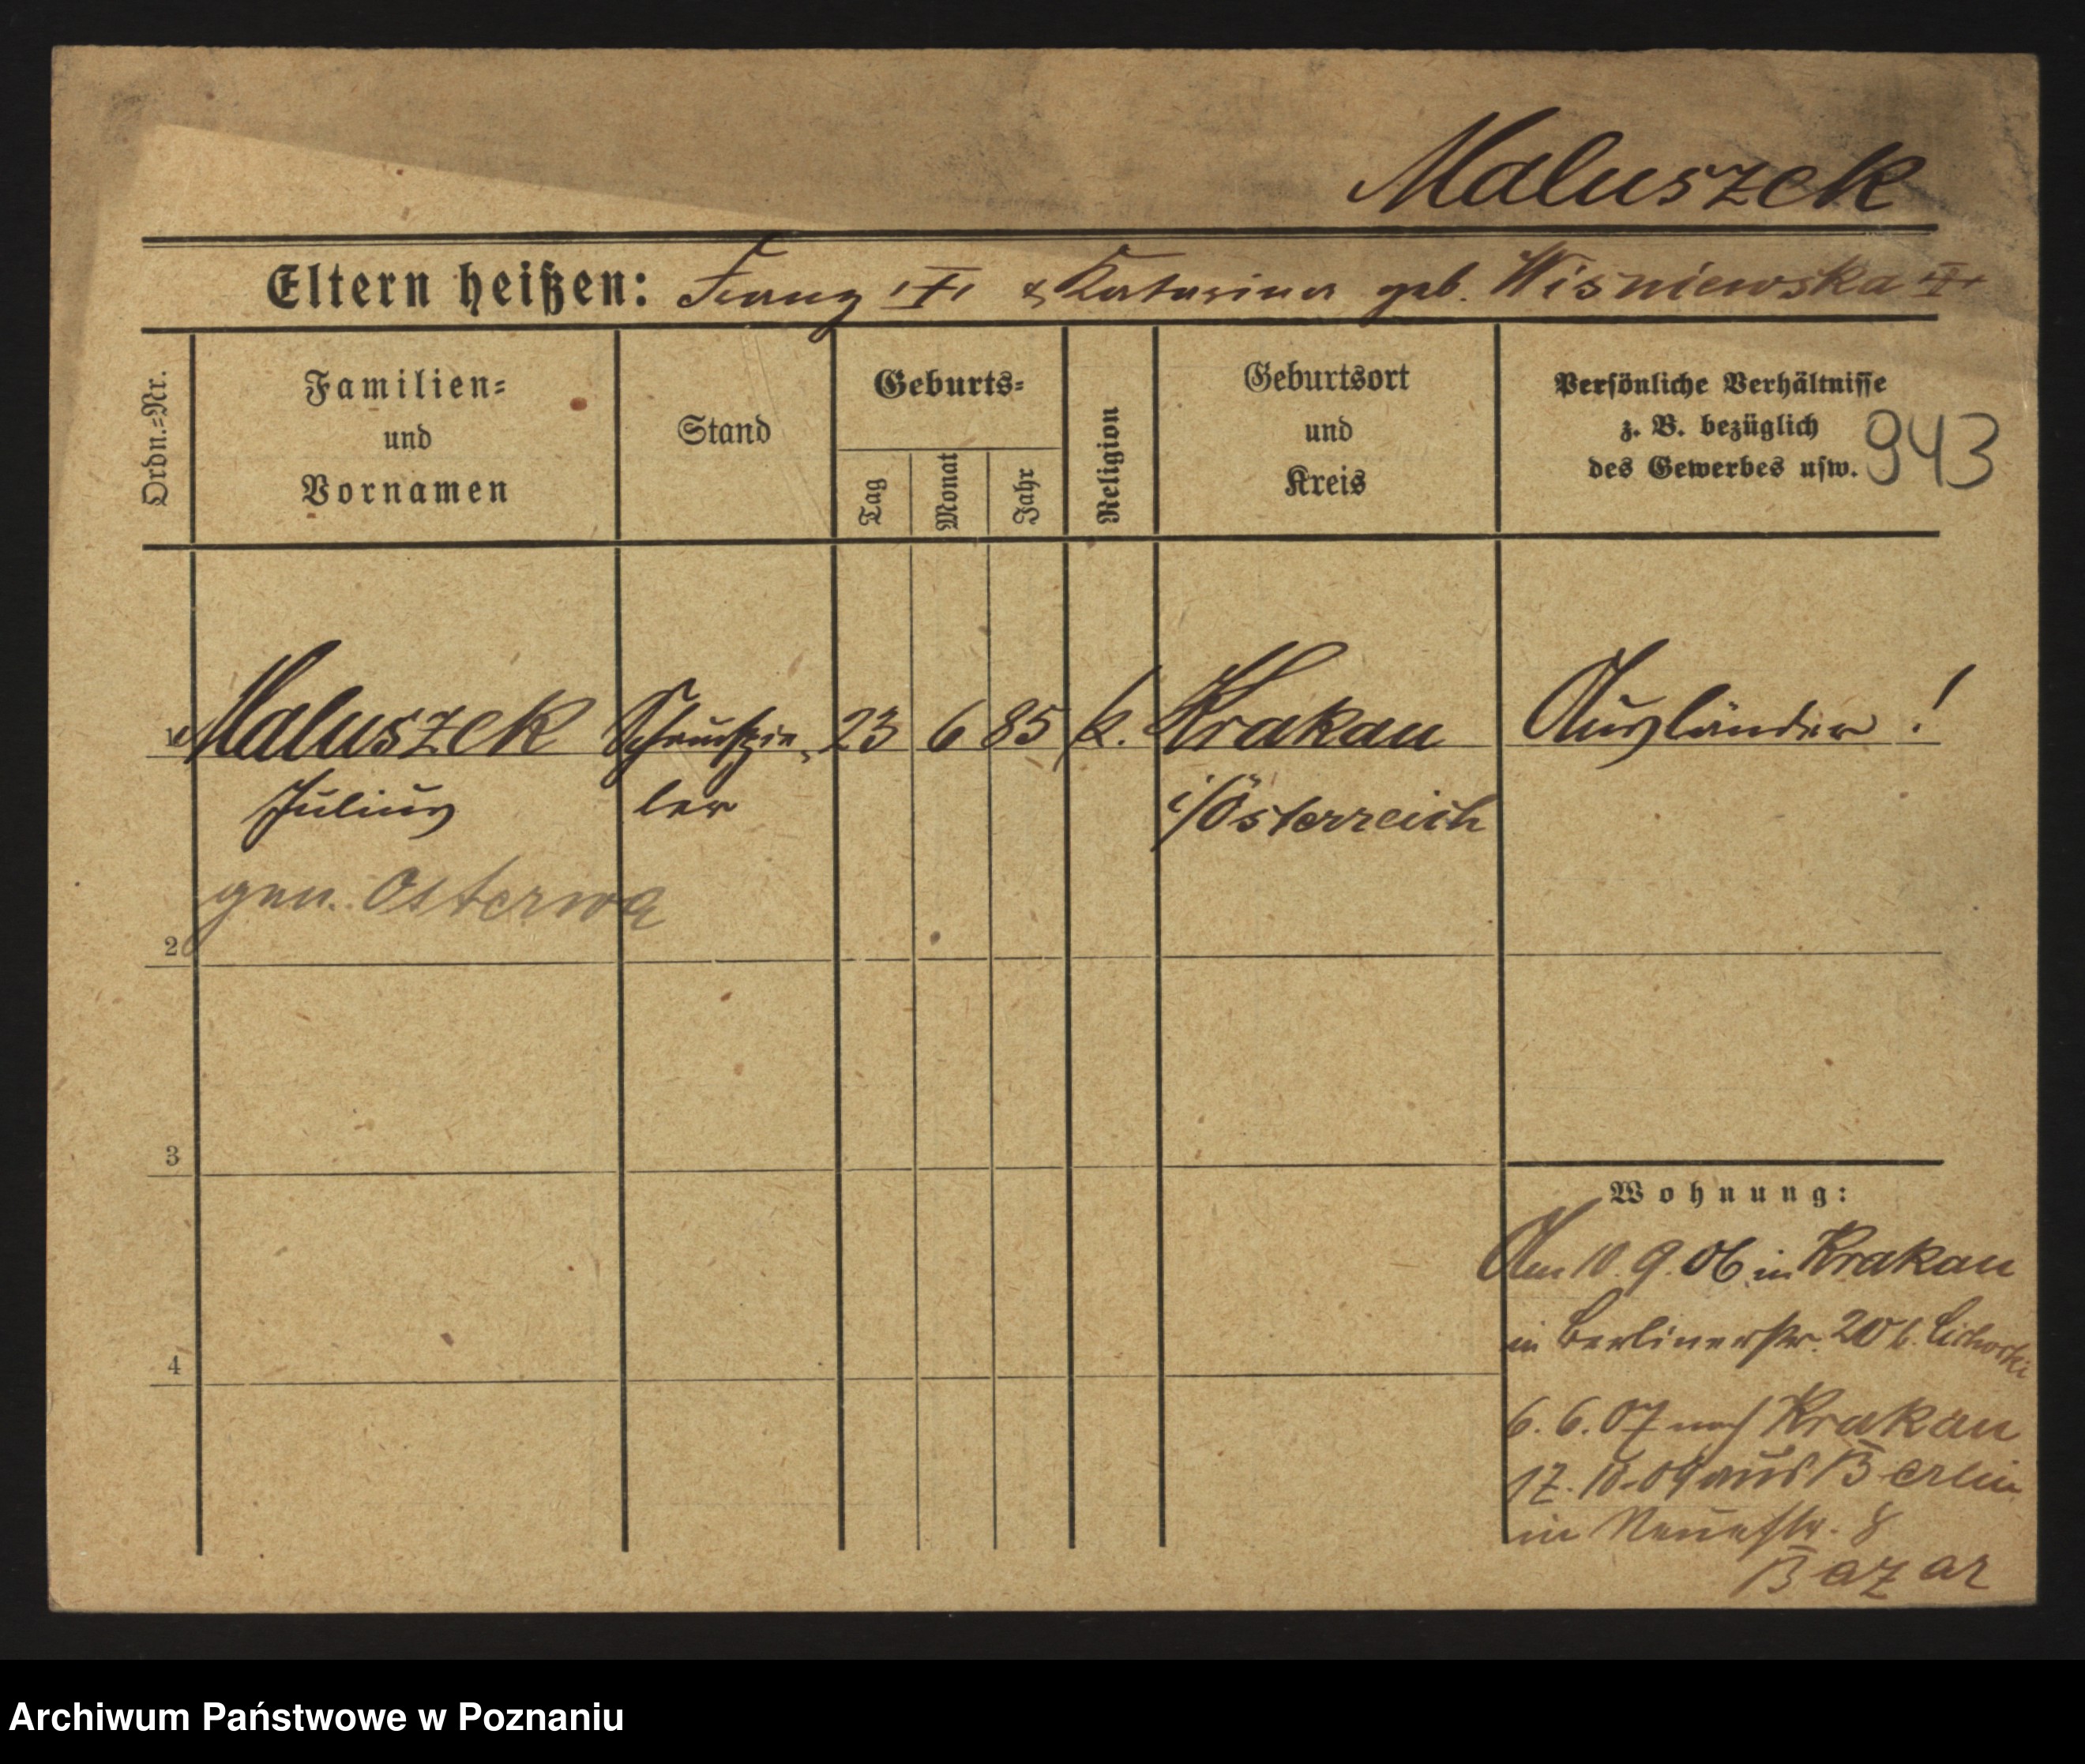 Maluszek
Eltern heißen: Franz † & Katarina geb. Wisniewska †
Ordn.=Nr.
Familien=
und
Vornamen
Stand
Geburts=
Tag
Monat
Jahr
Religion
Geburtsort
und
Kreis
Persönliche Verhältnisse
z. B. bezüglich
des Gewerbes usw.
943
1 Maluszek Schauspie- 23 6 85 k. Krakau Ausländer!
Julius ler i/Österreich
gen. Osterwa
2
3
4
Wohnung:
Am 10. 9. 06 in Krakau
in Berlinerstr. 20 b. Cichocki
6. 6. 07 nach Krakau
17. 10. 09 aus Berlin
in Neuestr. 8
Bazar
Archiwum Państwowe w Poznaniu